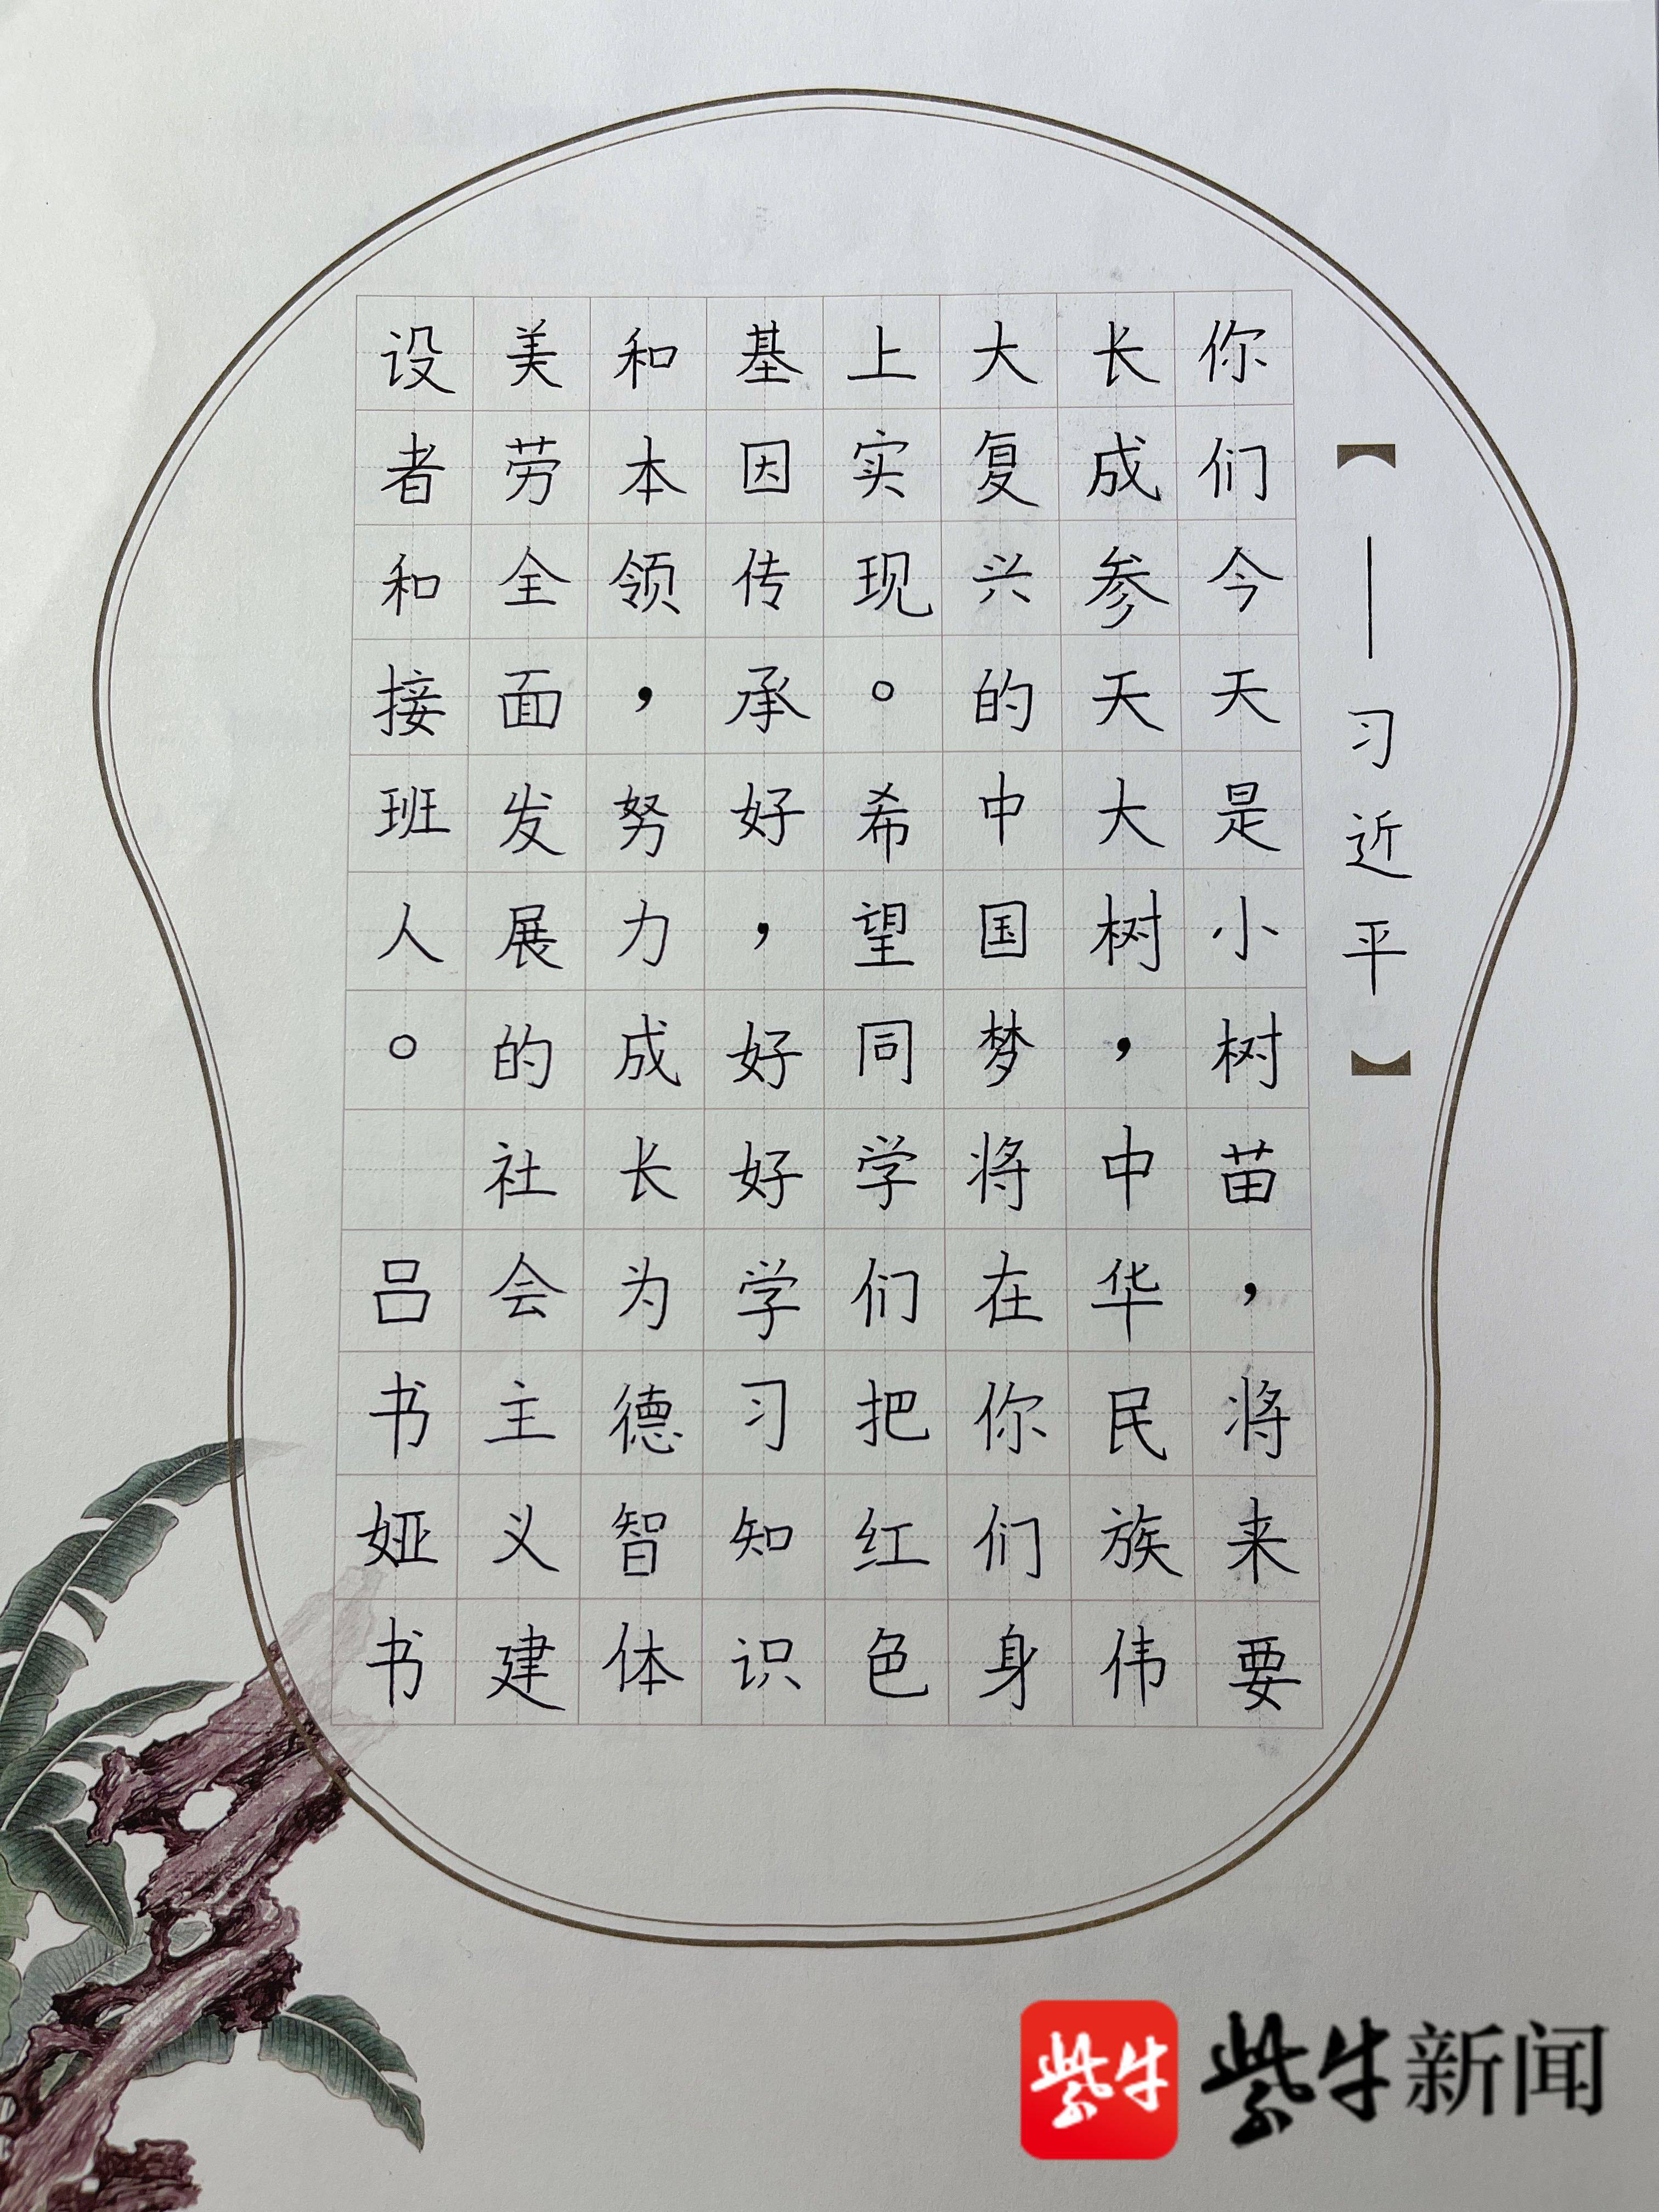 【——习近平】
你们今天是小树苗，将来要
长成参天大树，中华民族伟
大复兴的中国梦将在你们身
上实现。希望同学们把红色
基因传承好，好好学习知识
和本领，努力成长为德智体
美劳全面发展的社会主义建
设者和接班人。 吕书娅书
紫牛 紫牛新闻